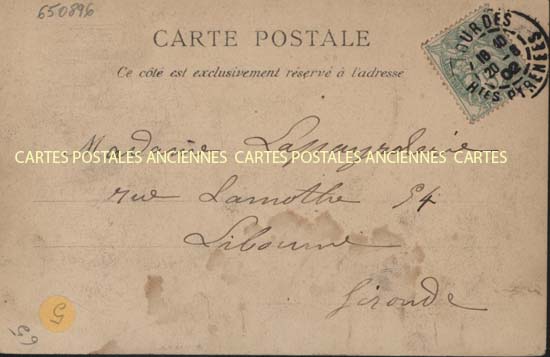 650896
CARTE POSTALE
Ce côté est exclusivement réservé à l'adresse
LOURDES
Htes PYRENEES
Madame
CARTES POSTALES ANCIENNES CARTES POSTALES ANCIENNES CARTES
rue Lamothe 54
Libourne
Gironde
5
65